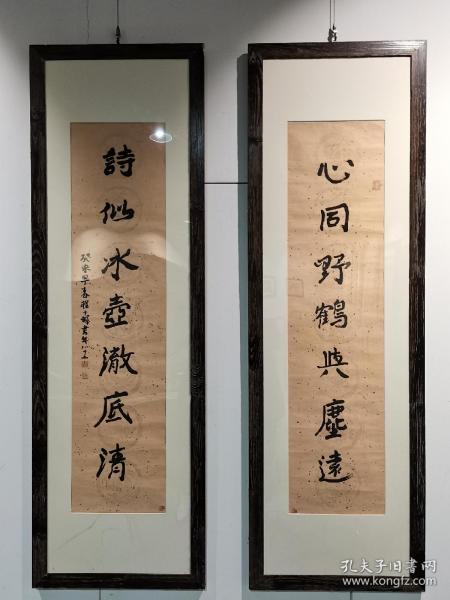 心同野鶴與塵遠
詩似冰壺澈底清
孔夫子旧书网
www.kongfz.com